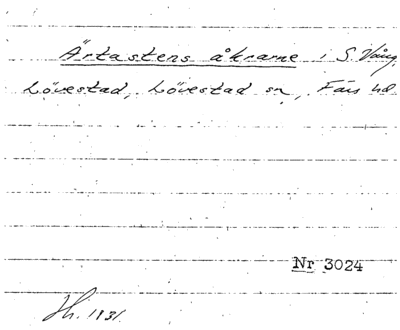 Ärtastens åkrarne i S. Vång,
Lövestad, Lövestad sn, Färs hd
Nr 3024
1931.